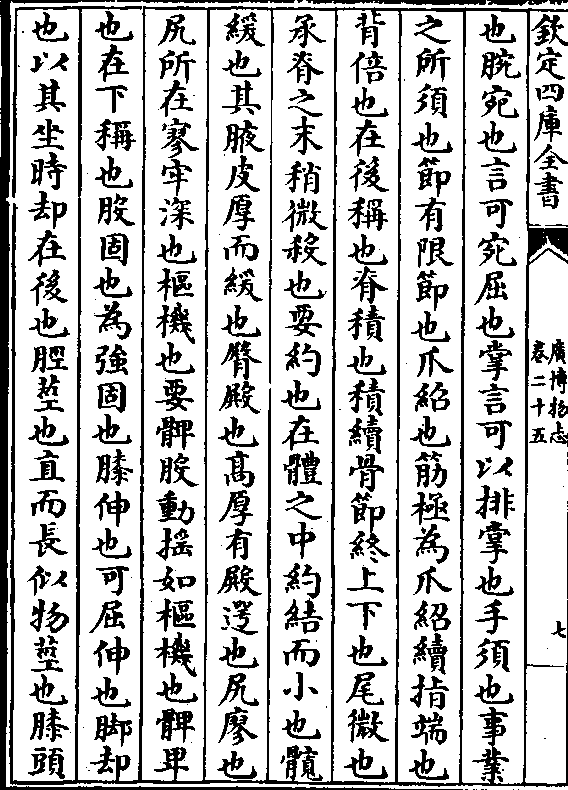 欽定四庫全書
廣博物志
卷二十五
七
也腕宛也言可宛屈也掌言可以排掌也手須也事業
之所須也節有限節也爪紹也筋極為爪紹續指端也
背倍也在後稱也脊積也積續骨節終上下也尾微也
承脊之末稍微殺也要約也在體之中約結而小也髖
緩也其腋皮厚而緩也臀殿也高厚有殿遌也尻廖也
尻所在寥牢深也樞機也要髀股動搖如樞機也髀卑
也在下稱也股固也為強固也膝伸也可屈伸也脚却
也以其坐時却在後也脛莖也直而長似物莖也膝頭